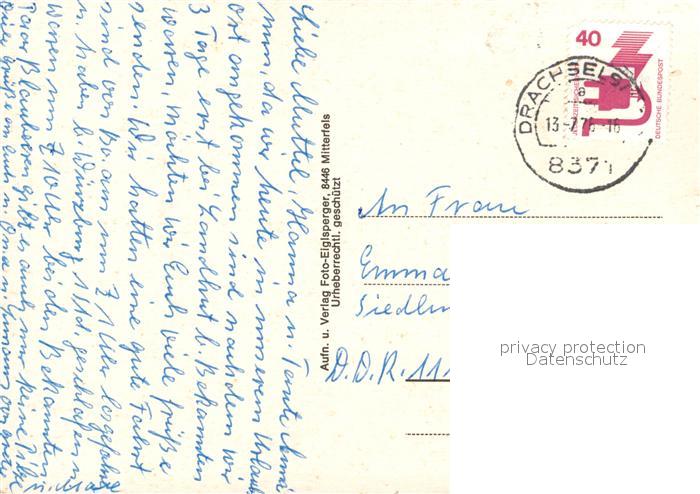 Liebe Mutti, Hanna u. Tante Anni
Nun, da wir heute in unserem Urlaub
ort angekommen sind nachdem wir
3 Tage erst bei Landshut b. Bekannten
waren, möchten wir Euch viele Grüße
senden. Wir hatten eine gute Fahrt
sind von Bo. am um 1 Uhr losgefahren
u. haben b. Würzburg 1 Std. geschlafen u.
waren um 10 Uhr bei den Bekannten
Blaubeeren gibt es auch nur keine Pilze
Viele Grüße an Euch u. Oma u.
Aufn. u. Verlag Foto-Eiglsperger, 8446 Mitterfels
Urheberrechtl. geschützt
40
DEUTSCHE BUNDESPOST
DRACHSELS
a
13-7.76-16
8371
An Frau
Emma
Siedlun
D.D.R. 11
privacy protection
Datenschutz